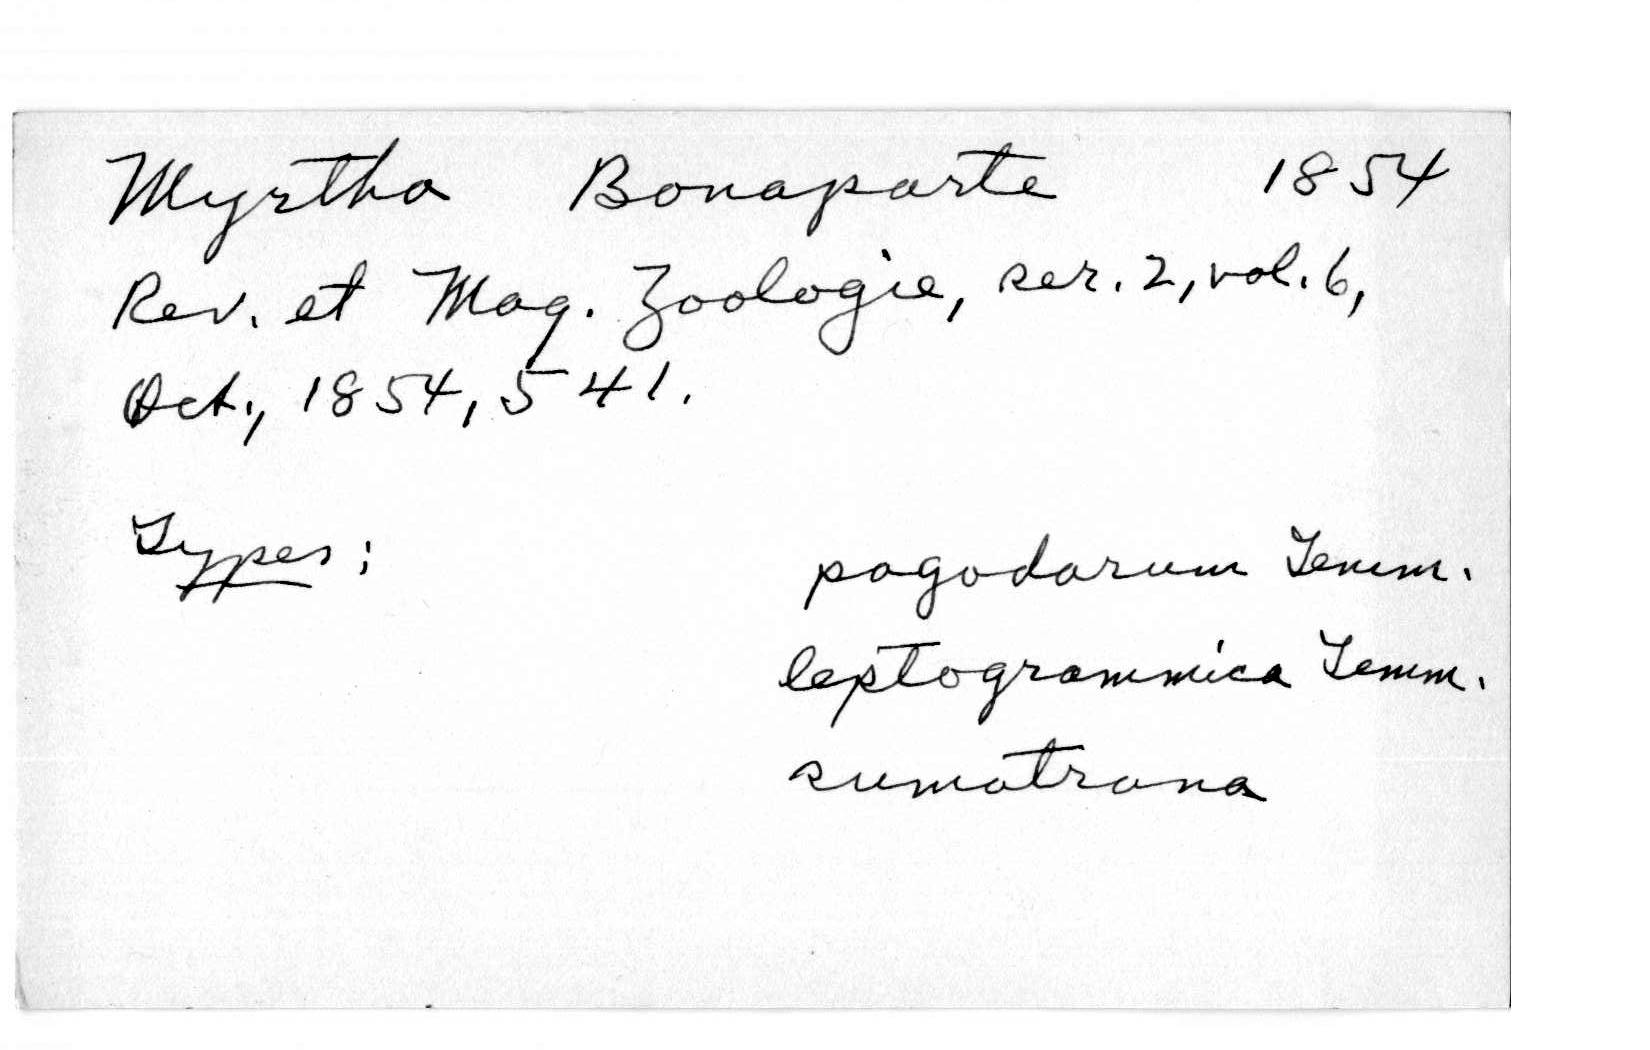 Myrtha Bonaparte 1854
Rev. et Mag. Zoologie, ser. 2, vol. 6,
Oct., 1854, 541.
Types; pagodarum Temm.
leptogrammica Temm.
sumatrana